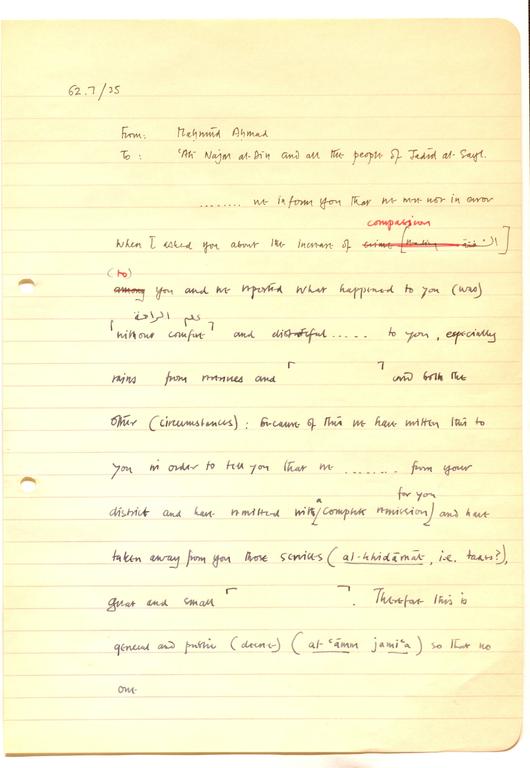 62.7/35
From: Mahmūd Ahmad
To: ʿAli Najm al-Din and all the people of Jadīd al-Sayl.
........ we inform you that we were not in error
compassion
when I asked you about the increase of crime [ ]
(to)
among you and we reported what happened to you (was)
عدم الراحة
⌈without comfort⌉ and distasteful ..... to you, especially
rains from and ⌈ ⌉ and both the
other (circumstances): because of this we have written this to
you in order to tell you that we ........ from your
for you
district and have remitted with a (complete remission) and have
taken away from you those services (al-khidāmāt, i.e. taxes?),
great and small ⌈ ⌉. Therefore this is
general and public (decree) (al-ʿāmm jamīʿa) so that no
one